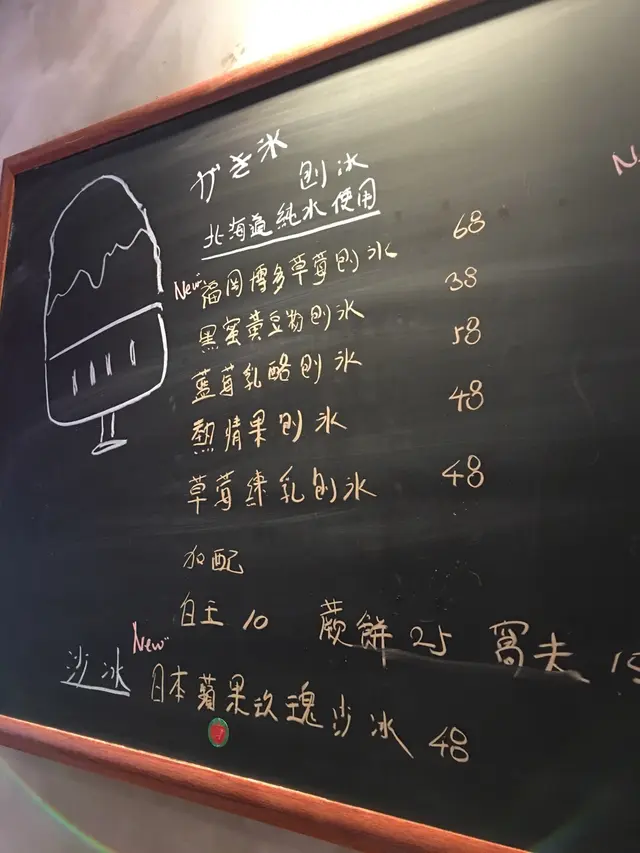 がき氷
刨冰
北海道純水使用
New 福岡博多草莓刨氷 68
黑蜜黃豆粉刨氷 38
藍莓乳酪刨氷 58
熱情果刨氷 48
草莓練乳刨氷 48
加配
白玉 10 蕨餅 25 窩夫
New
沙冰 日本蘋果玫瑰沙冰 48